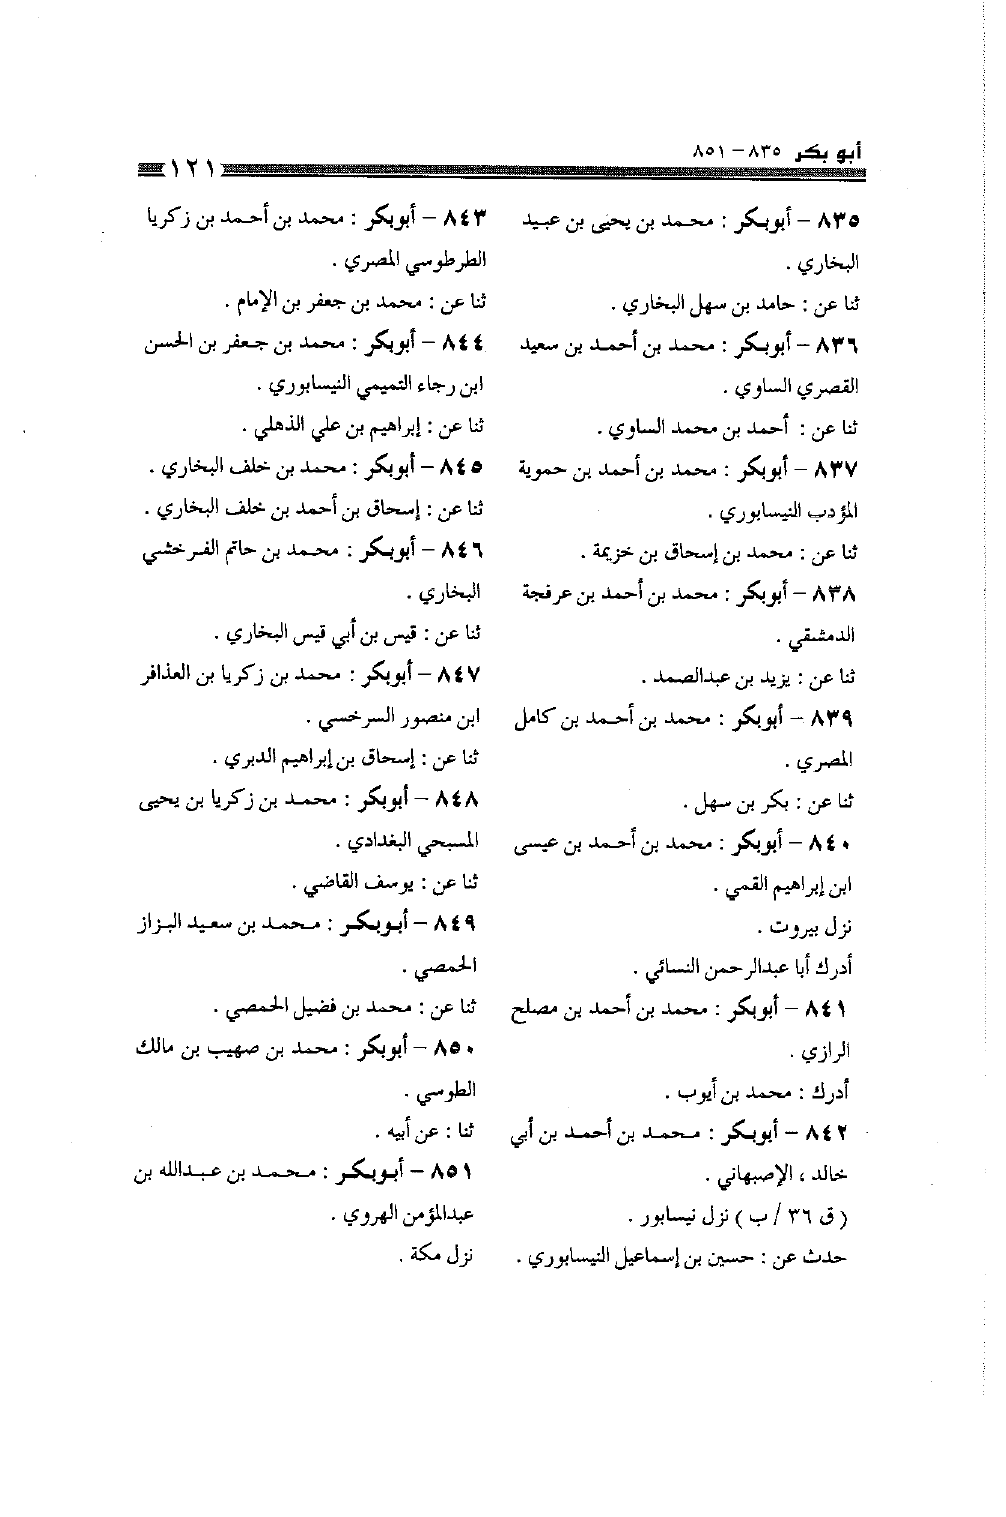 أبو بكر ٨٣٥ – ٨٥١
١٢١
٨٣٥ – أبوبكر : محمد بن يحيى بن عبيد
البخاري .
ثنا عن : حامد بن سهل البخاري .
٨٣٦ – أبوبكر : محمد بن أحمد بن سعيد
القصري الساوي .
ثنا عن : أحمد بن محمد الساوي .
٨٣٧ – أبوبكر : محمد بن أحمد بن حموية
المؤدب النيسابوري .
ثنا عن : محمد بن إسحاق بن خزيمة .
٨٣٨ – أبوبكر : محمد بن أحمد بن عرفجة
الدمشقي .
ثنا عن : يزيد بن عبدالصمد .
٨٣٩ – أبوبكر : محمد بن أحمد بن كامل
المصري .
ثنا عن : بكر بن سهل .
٨٤٠ – أبوبكر : محمد بن أحمد بن عيسى
ابن إبراهيم القمي .
نزل بيروت .
أدرك أبا عبدالرحمن النسائي .
٨٤١ – أبوبكر : محمد بن أحمد بن مصلح
الرازي .
أدرك : محمد بن أيوب .
٨٤٢ – أبوبكر : محمد بن أحمد بن أبي
خالد ، الإصبهاني .
( ق ٣٦ / ب ) نزل نيسابور .
حدث عن : حسين بن إسماعيل النيسابوري .
٨٤٣ – أبوبكر : محمد بن أحمد بن زكريا
الطرطوسي المصري .
ثنا عن : محمد بن جعفر بن الإمام .
٨٤٤ – أبوبكر : محمد بن جعفر بن الحسن
ابن رجاء التميمي النيسابوري .
ثنا عن : إبراهيم بن علي الذهلي .
٨٤٥ – أبوبكر : محمد بن خلف البخاري .
ثنا عن : إسحاق بن أحمد بن خلف البخاري .
٨٤٦ – أبوبكر : محمد بن حاتم الفرخشي
البخاري .
ثنا عن : قيس بن أبي قيس البخاري .
٨٤٧ – أبوبكر : محمد بن زكريا بن العذافر
ابن منصور السرخسي .
ثنا عن : إسحاق بن إبراهيم الدبري .
٨٤٨ – أبوبكر : محمد بن زكريا بن يحيى
المسبحي البغدادي .
ثنا عن : يوسف القاضي .
٨٤٩ – أبوبكر : محمد بن سعيد البزاز
الحمصي .
ثنا عن : محمد بن فضيل الحمصي .
٨٥٠ – أبوبكر : محمد بن صهيب بن مالك
الطوسي .
ثنا : عن أبيه .
٨٥١ – أبوبكر : محمد بن عبدالله بن
عبدالمؤمن الهروي .
نزل مكة .